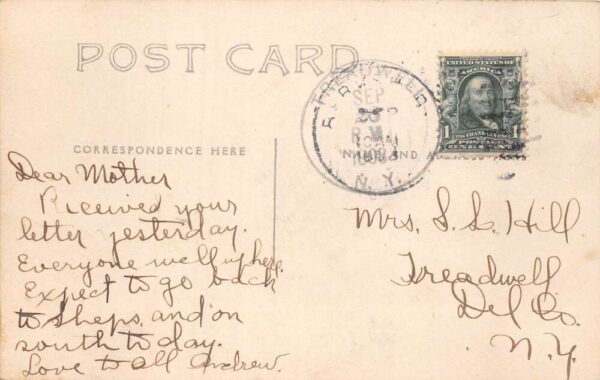 POST CARD
CORRESPONDENCE HERE
Dear Mother
Received your
letter yesterday.
Everyone well up here.
Expect to go back
to Sheps and on
south to day.
Love to all Andrew.
SEP
N. Y.
UNITED STATES OF
AMERICA
1 FRANKLIN 1
POSTAGE
ONE CENT
Mrs. S. L. Hill.
Treadwell
Del Co.
N. Y.